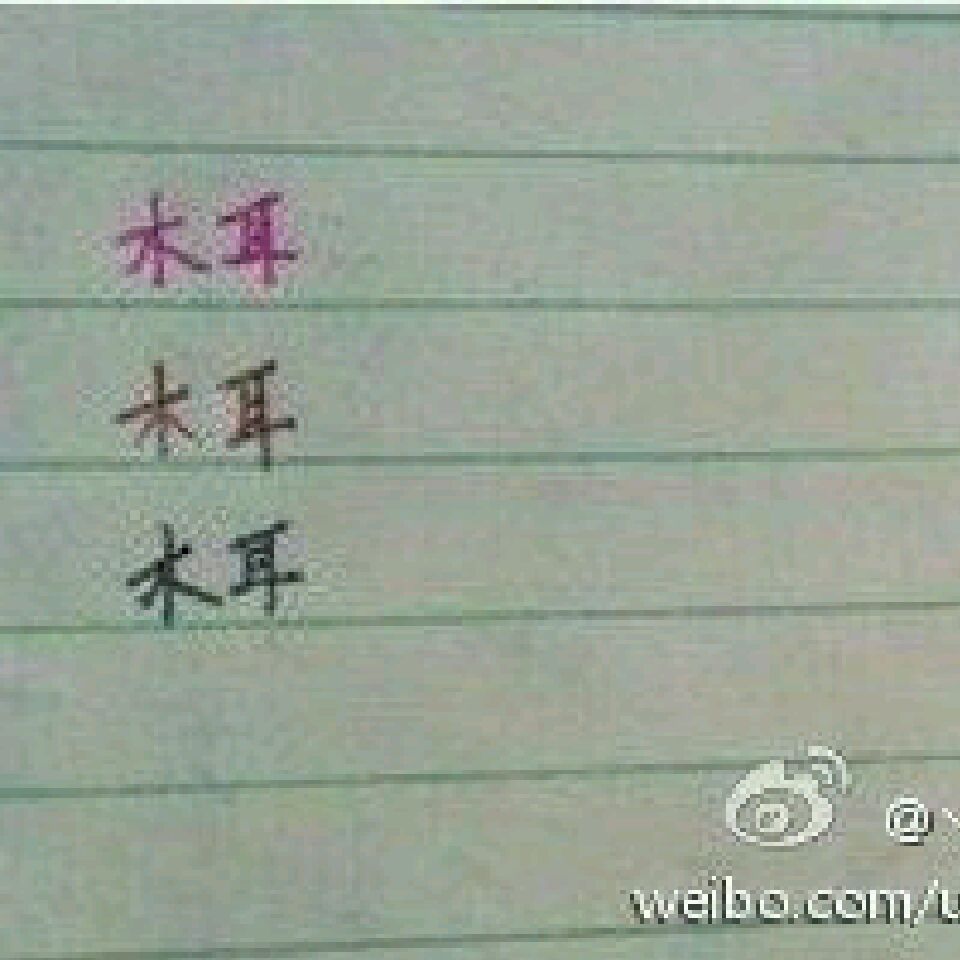 木耳
木耳
木耳
@
weibo.com/u